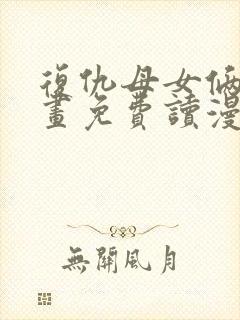 復仇母女倆
畫免費讀漫
無關風月